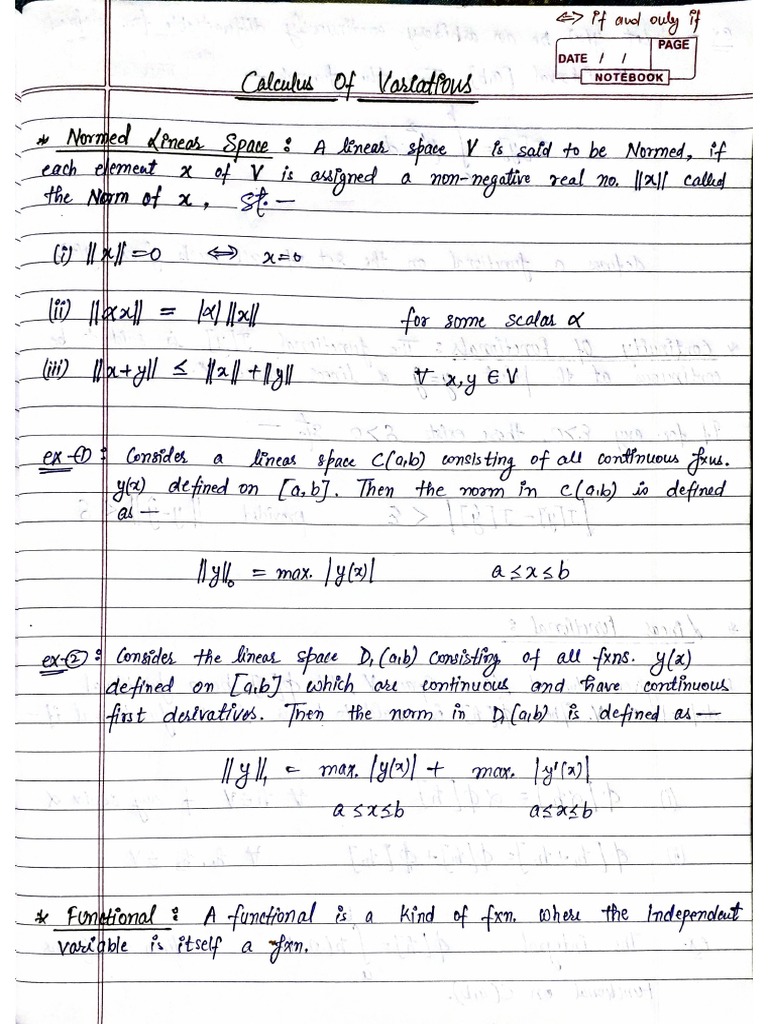 ⇔ if and only if
PAGE
DATE / /
NOTEBOOK
Calculus Of Variations
* Normed Linear Space : A linear space V is said to be Normed, if
each element x of V is assigned a non-negative real no. ||x|| called
the Norm of x, st. —
(i) ||x|| = 0 ⇔ x=0
(ii) ||αx|| = |α| ||x|| for some scalar α
(iii) ||x+y|| ≤ ||x|| + ||y|| ∀ x,y ∈ V
ex-① : Consider a linear space C(a,b) consisting of all continuous fxns.
y(x) defined on [a,b]. Then the norm in C(a,b) is defined
as —
||y||₀ = max. |y(x)| a≤x≤b
ex-② : Consider the linear space D₁(a,b) consisting of all fxns. y(x)
defined on [a,b] which are continuous and have continuous
first derivatives. Then the norm in D₁(a,b) is defined as —
||y||₁ = max. |y(x)| + max. |y'(x)|
a≤x≤b a≤x≤b
* Functional : A functional is a kind of fxn. where the Independent
variable is itself a fxn.